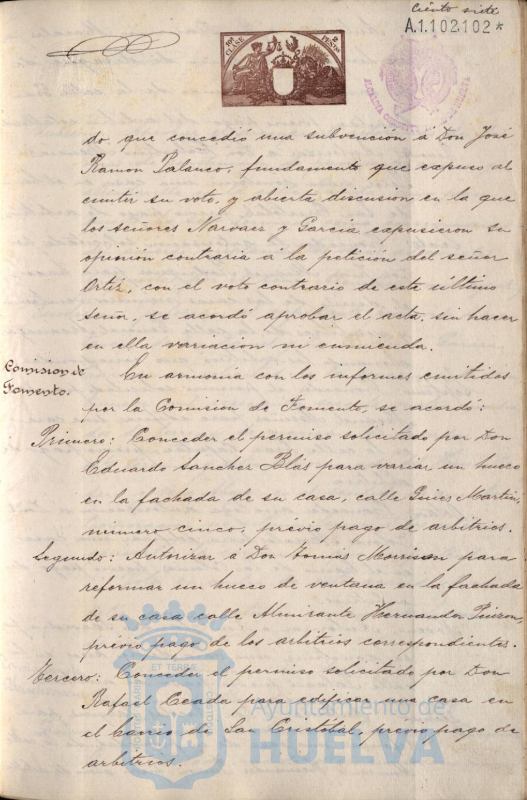 Ciento siete
A.1.102.102*
10ª CLASE 2 PESTAS
do que concedió una subvención á Don José
Ramon Palanco, fundamento que expuso al
emitir su voto, y abierta discusion en la que
los señores Narvaez y Garcia expusieron su
opinión contraria á la petición del señor
Ortiz, con el voto contrario de este último
señor, se acordó aprobar el acta, sin hacer
en ella variacion ni enmienda.
Comision de
Fomento.
En armonía con los informes emitidos
por la Comision de Fomento, se acordó:
Primero: Conceder el permiso solicitado por Don
Eduardo Sanchez Blás para variar un hueco
en la fachada de su casa, calle Martin,
número cinco, prévio pago de arbitrios.
Segundo: Autorizar á Don Tomás Morrison para
reformar un hueco de ventana en la fachada
de su casa calle Almirante Hernandez Pinzon,
prévio pago de los arbitrios correspondientes.
Tercero: Conceder el permiso solicitado por Don
Rafael Ceada para edificar una casa en
el barrio de San Cristobal, prévio pago de
arbitrios.
Ayuntamiento de
HUELVA